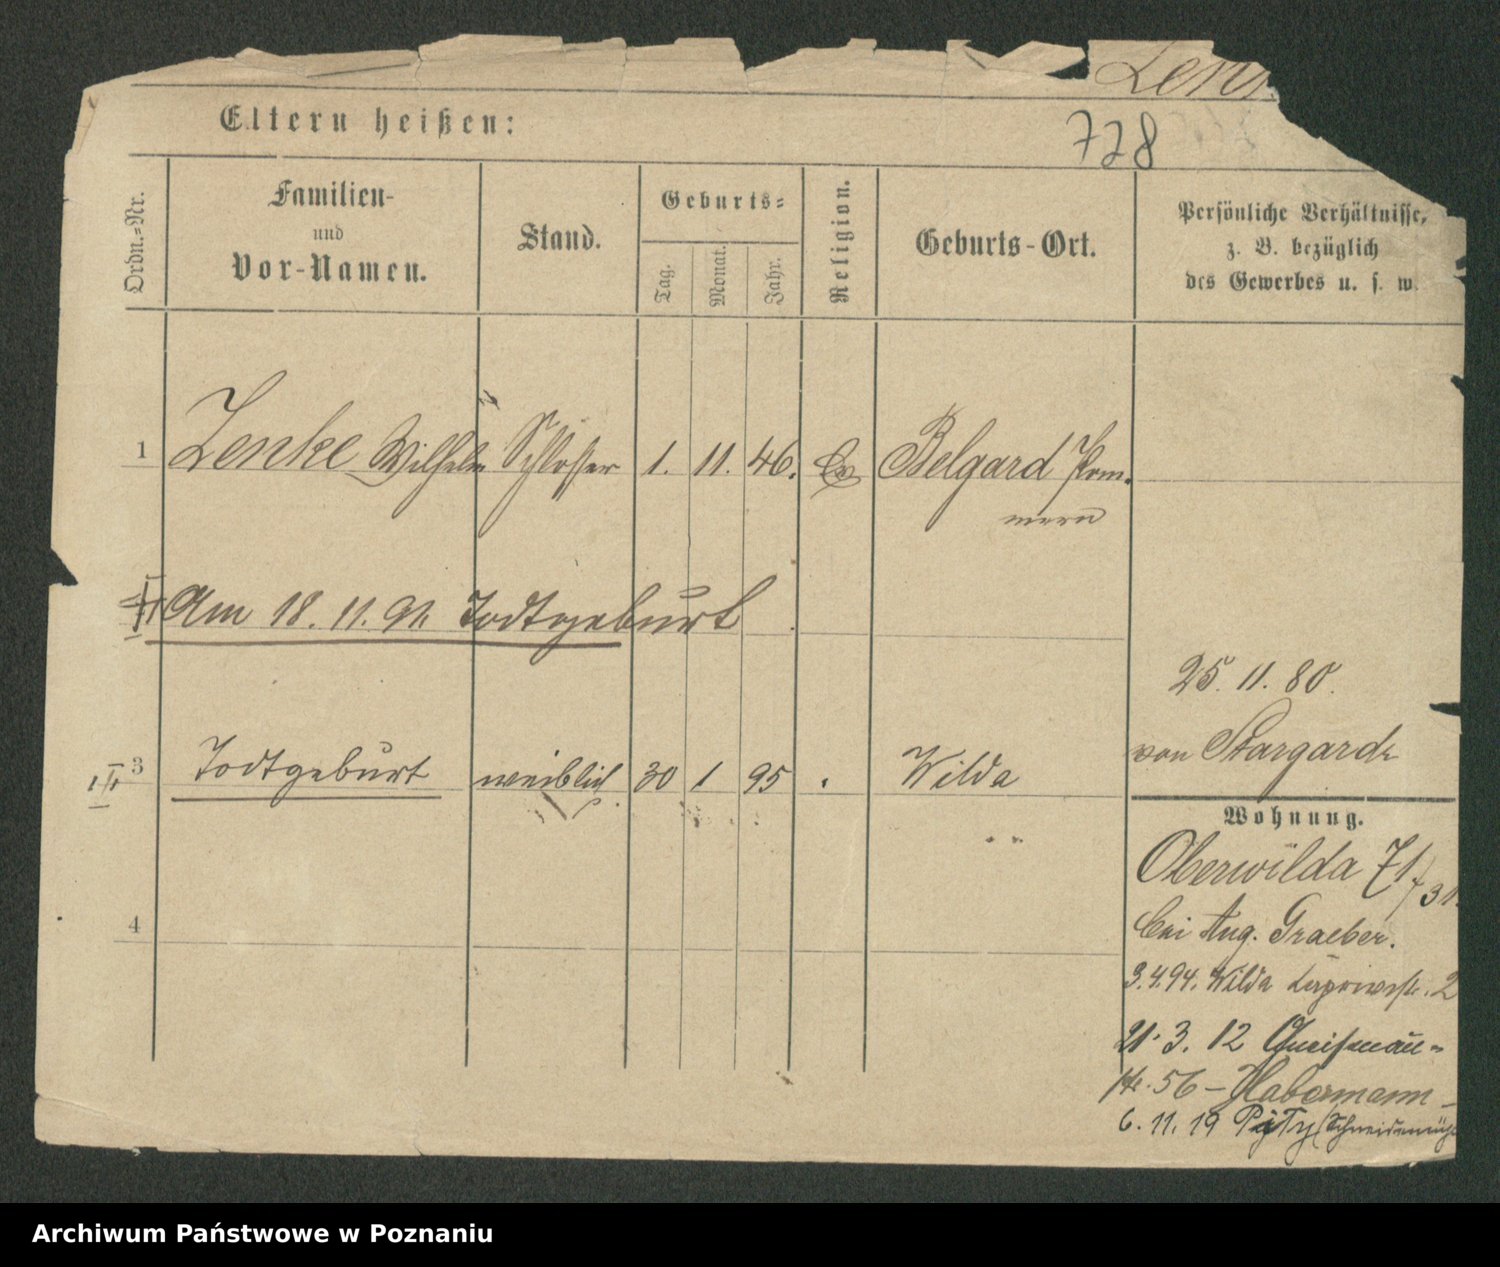 Lenk
Eltern heißen:
728
Ordn.=Nr.
Familien-
und
Vor-Namen.
Stand.
Geburts=
Tag.
Monat.
Jahr.
Religion.
Geburts-Ort.
Persönliche Verhältnisse,
z. B. bezüglich
des Gewerbes u. s. w.
1 Lenke Wilhelm Schlosser 1. 11. 46. Ev Belgard Pom-
mern
Am 18. 11. 91. Todtgeburt
25. 11. 80.
von Stargard
3 Todtgeburt weiblich 30 1 95 Wilda
Wohnung.
Oberwilda 71
bei Aug. Graeber.
4
3.4.94. Wilda 2
21.3.12 Gneisenau-
str. 56 - Habermann -
6.11.19 (Schneidemüh
Archiwum Państwowe w Poznaniu